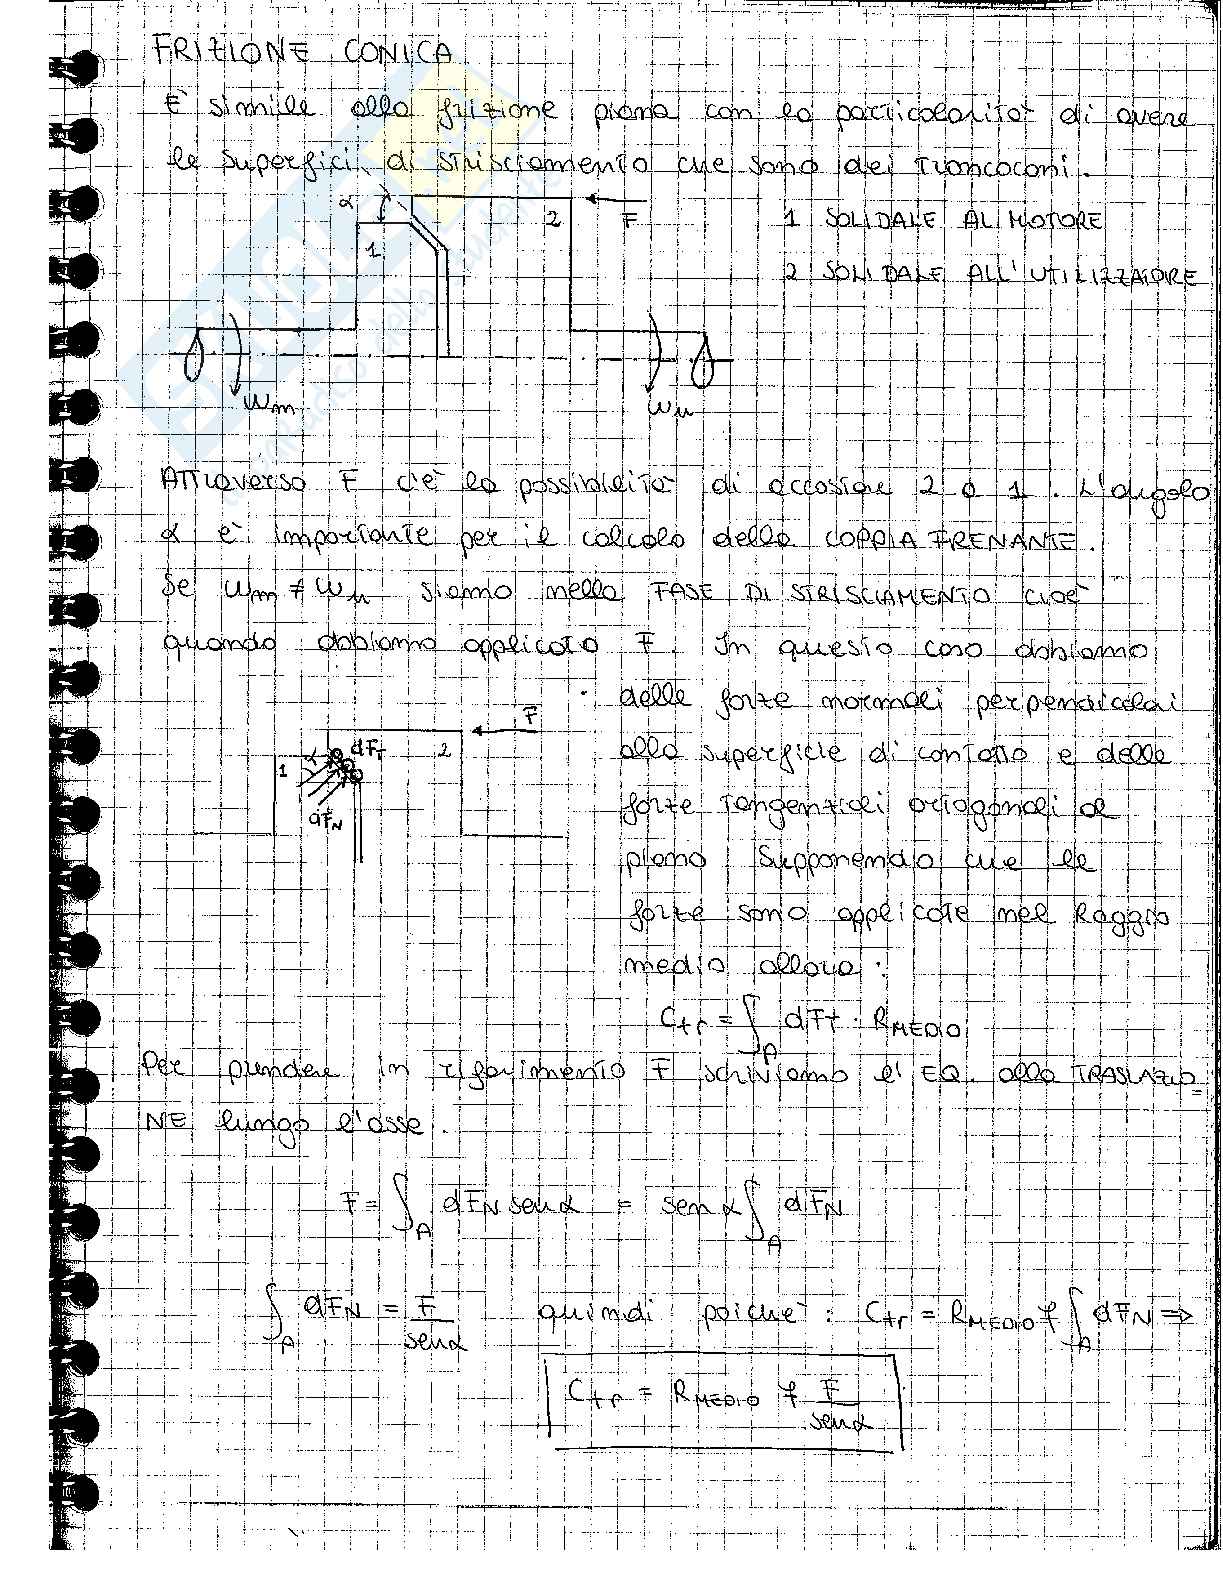 FRIZIONE CONICA
È simile alla frizione piana con la particolarità di avere
le superfici di strisciamento che sono dei troncoconi.
α
1
2
F
1 SOLIDALE AL MOTORE
2 SOLIDALE ALL'UTILIZZATORE
ωm
ωu
Attraverso F c'è la possibilità di accostare 2 a 1. L'angolo
α è importante per il calcolo della COPPIA FRENANTE.
Se ωm ≠ ωu siamo nella FASE DI STRISCIAMENTO cioè
quando abbiamo applicato F. In questo caso abbiamo
delle forze normali perpendicolari
alla superficie di contatto e delle
forze tangenziali ortogonali al
piano. Supponendo che le
forze sono applicate nel Raggio
medio allora:
1
α
dFt
2
F
dFN
Ctr = ∫A dFt · RMEDIO
Per prendere in riferimento F scriviamo l'EQ. alla TRASLAZIO
NE lungo l'asse.
F = ∫A dFN senα = senα ∫A dFN
∫A dFN = F/senα quindi poiché: Ctr = RMEDIO f ∫A dFN ⇒
Ctr = RMEDIO f F/senα